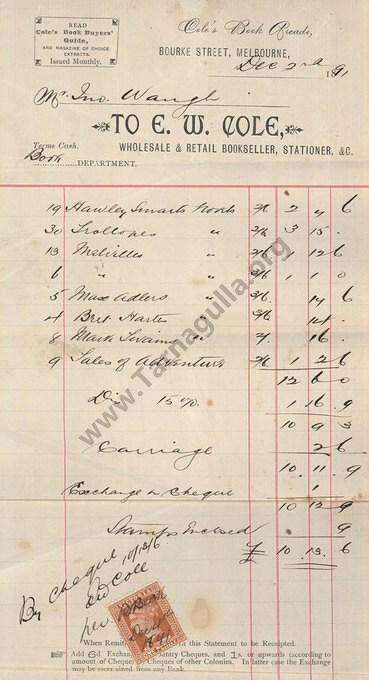 READ
Cole's Book Buyers'
Guide,
AND MAGAZINE OF CHOICE
EXTRACTS.
Issued Monthly.
Cole's Book Arcade,
BOURKE STREET, MELBOURNE,
Dec 2nd 1891
Mr. Jno. Waugh
TO E. W. COLE,
Terms Cash.
WHOLESALE & RETAIL BOOKSELLER, STATIONER, &C.
Book DEPARTMENT.
19 Hawley Smarts Works 2/6 2 7 6
30 Trollopes " 2/6 3 15 .
13 Melvilles " 2/6 1 12 6
6 " " 3/6 1 1 0
5 Max Adlers " 14 6
4 Bret Harte " 3/6 14 .
8 Mark Twains " 2/ 16 .
9 Tales of Adventure 2/6 1 2 6
12 6 0
Dis 15 %. 1 16 9
10 9 3
Carriage 2 6
10 11 9
Exchange on Cheque 1
10 12 9
Stamps Enclosed 9
£ 10 13 6
By Cheque 10/13/6
EW Cole
Dec
www.Tarnagulla.org
When Remit this Statement to be Receipted.
Add 6d. Exchan Country Cheques, and 1s. or upwards (according to
amount of Cheque Cheques of other Colonies. In latter case the Exchange
may be from any Bank.